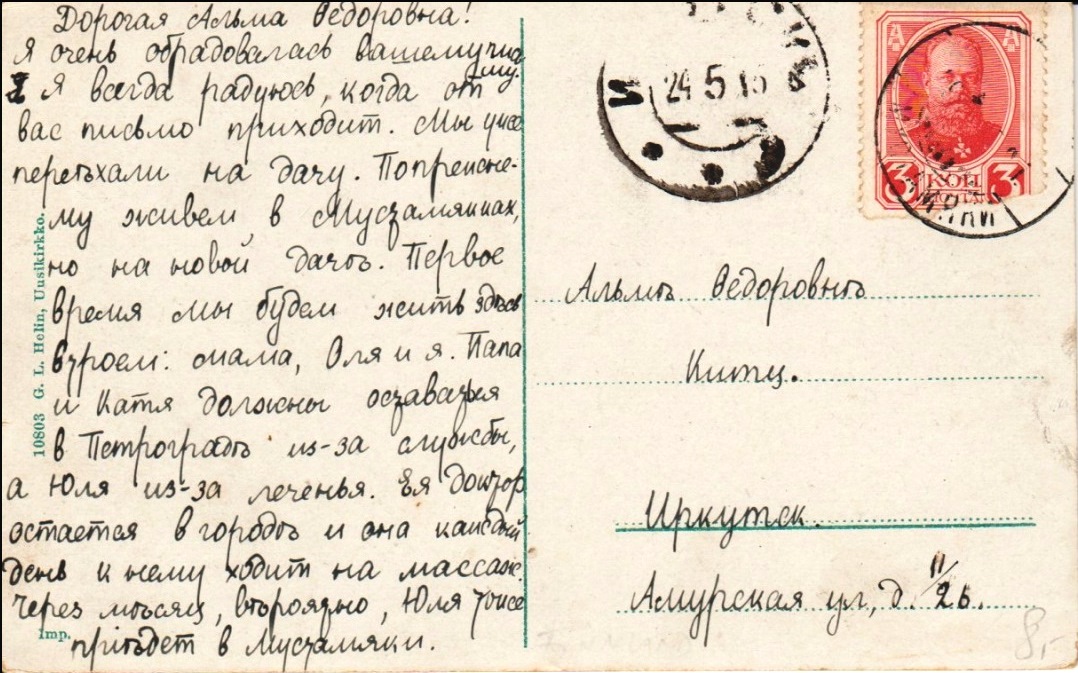 Дорогая Альма Ѳедоровна!
Я очень обрадовалась вашему письму.
Я всегда радуюсь, когда от
вас письмо приходит. Мы уже
переѣхали на дачу. Попрежне-
му живем в Мустамяках,
но на новой дачѣ. Первое
время мы будем жить здѣсь
втроем: мама, Оля и я. Папа
и Катя должны оставаться
в Петроградѣ из-за службы,
а Юля из-за леченья. Ея доктор
остается в городѣ и она каждый
день к нему ходит на массаж.
Через мѣсяц, вѣроятно, Юля тоже
пріѣдет в Мустамяки.
10803 G. L. Helin, Uusikirkko.
Imp.
24 5 15
3 КОП 3
Альмѣ Ѳедоровнѣ
Китц.
Иркутск.
Амурская ул, д. 11/26.
8,-